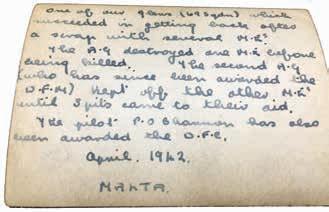 One of our glens (69 Sqdn) which
succeeded in getting back after
a scrap with several M.E'.
The A.G destroyed one M.E before
being killed. The second A.G
(who has since been awarded the
D.F.M) kept off the other M.E'
until Spits came to their aid.
The pilot P.O Shannon has also
been awarded the D.F.C.
April. 1942.
MALTA.